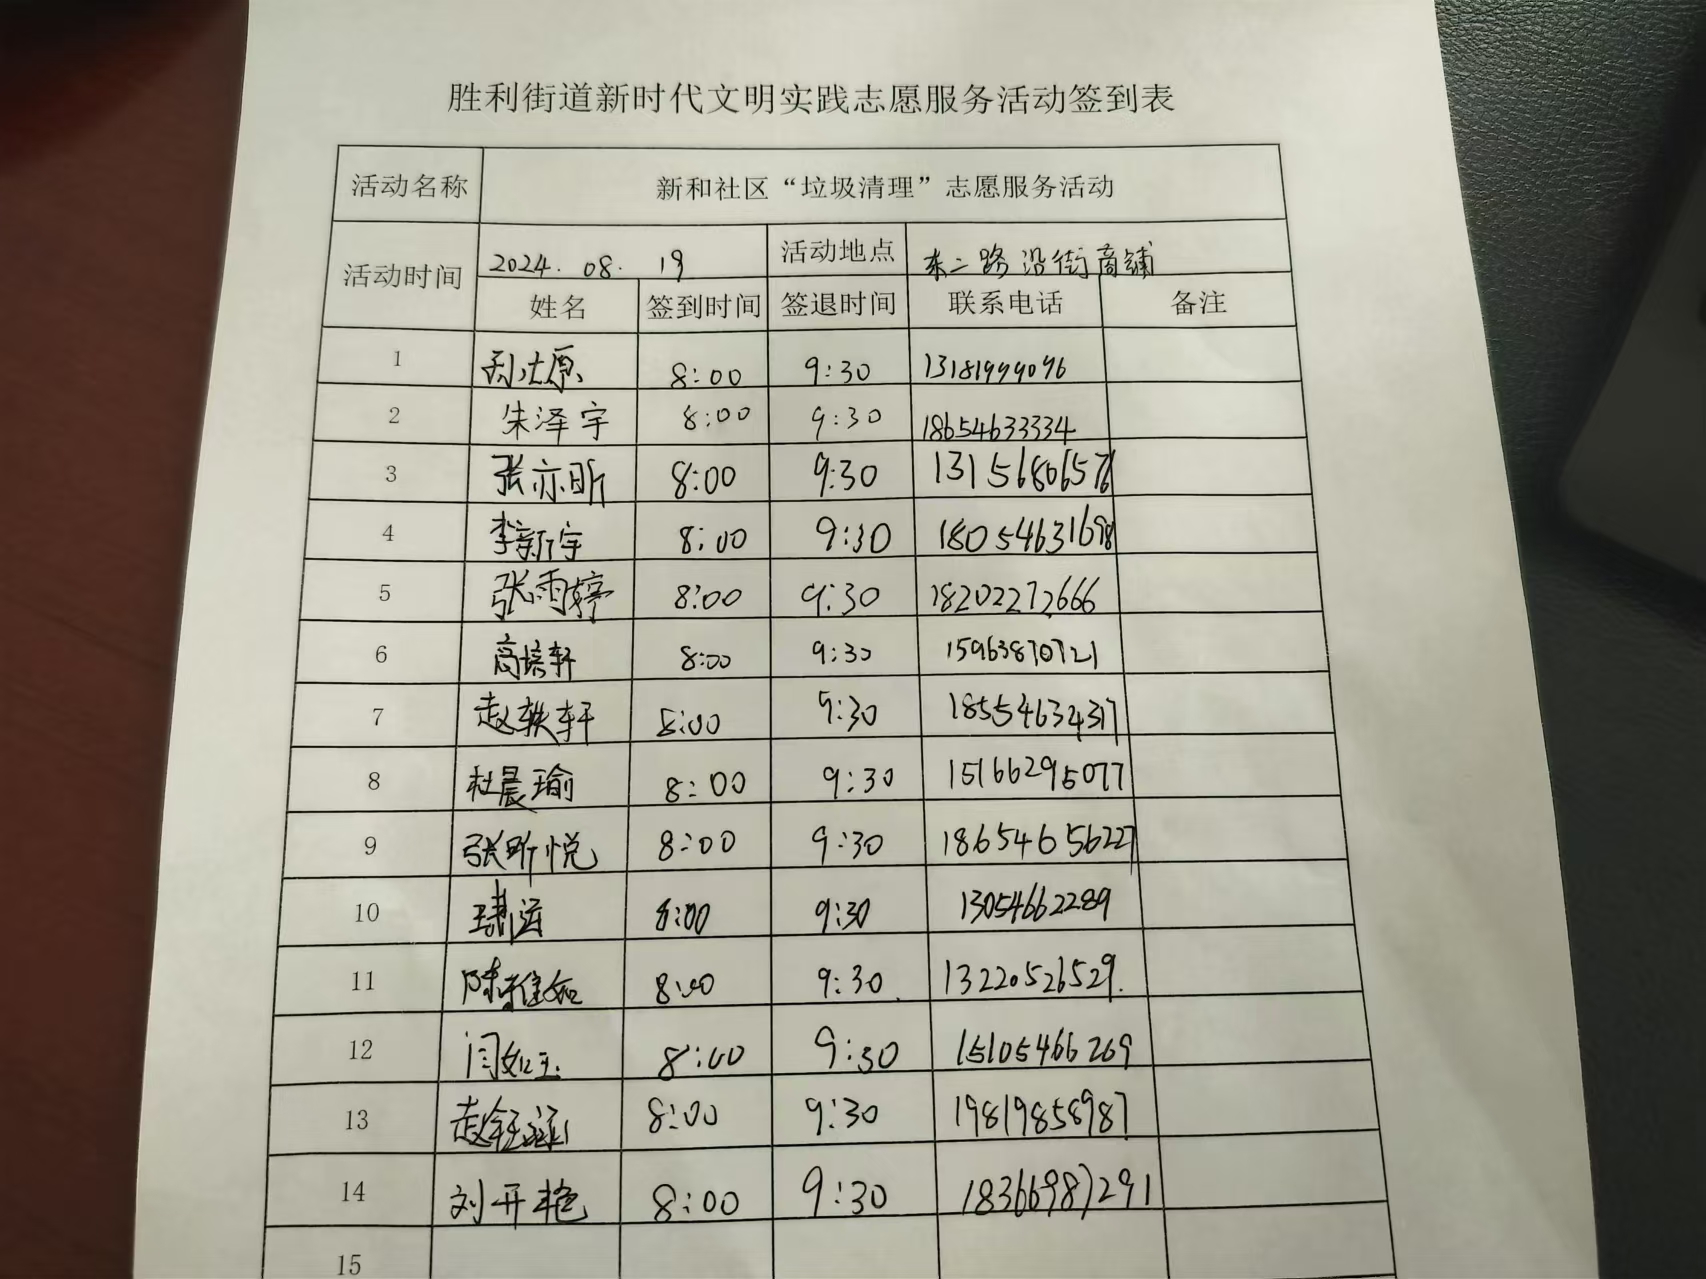 胜利街道新时代文明实践志愿服务活动签到表
活动名称 新和社区“垃圾清理”志愿服务活动
活动时间 2024.08.19 活动地点 东二路沿街商铺
姓名 签到时间 签退时间 联系电话 备注
1 8:00 9:30 13181999096
2 朱泽宇 8:00 9:30 18654633334
3 张亦昕 8:00 9:30 13156806576
4 李新宇 8:00 9:30 18054631698
5 张雨婷 8:00 9:30 18202272666
6 高培轩 8:00 9:30 15963870721
7 赵轶轩 8:00 9:30 18554634317
8 杜晨瑜 8:00 9:30 15166295077
9 张昕悦 8:00 9:30 18654656227
10 8:00 9:30 13054662289
11 8:00 9:30 13220526529.
12 闫如玉 8:00 9:30 15105466269
13 赵 8:00 9:30 19819858987
14 刘开艳 8:00 9:30 18366987291
15